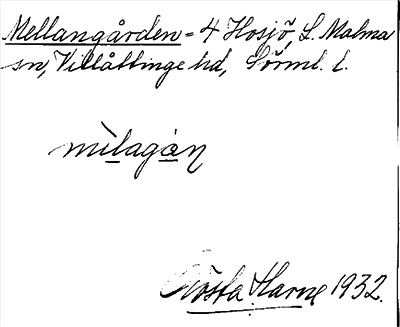 Mellangården = 4 Hosjö, L. Malma
sn, Villåttinge hd, Sörml. l.
mìlagàn
Gösta Harne 1932.